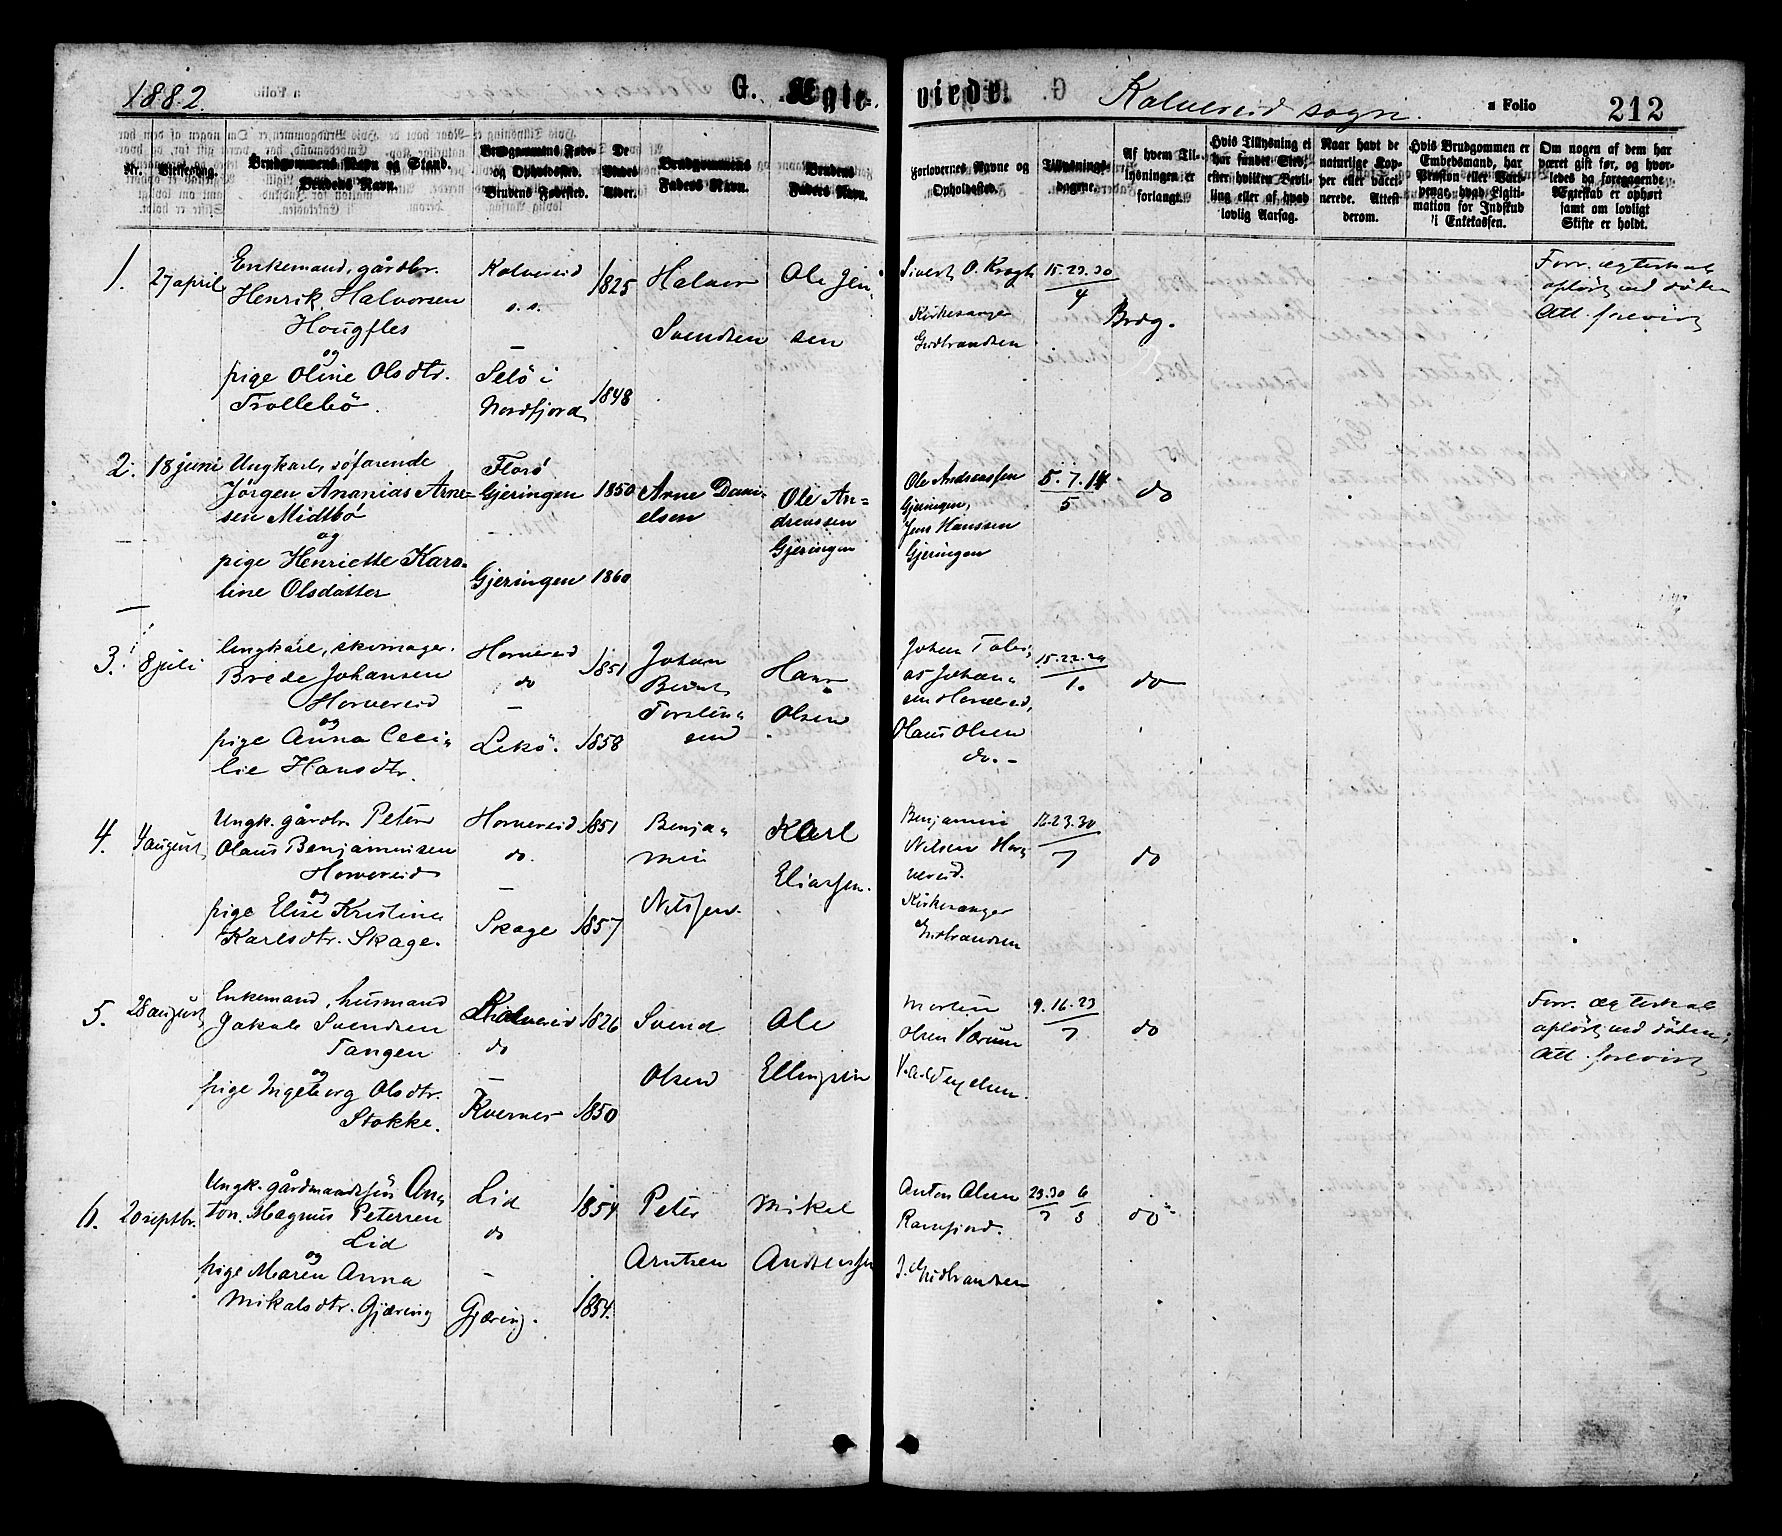 1882.
G. Ægte-
viede.
Kolvereid sogn.
a Folio
212
Nr.
Vielsesdag.
Brudgommens Navn og Stand.
Brudens Navn.
Brudgommens Føde-
og Opholdssted.
Brudens Fødested.
De
Viedes
Alder.
Brudgommens
Faders Navn.
Brudens
Faders Navn.
Forlovernes Navne og
Opholdssted.
Tillysnings-
dagene.
Af hvem Til-
lysningen er
forlangt.
Hvis Tillysning ei
har fundet Sted,
efter hvilken Bevil-
ling eller af hvad
lovlig Aarsag.
Naar havt de
naturlige Kop-
per eller vacci-
nerede. Attest
derom.
Hvis Brudgommen er
Embedsmand, har
Pension eller Vart-
penge, hvad Ligiti-
mation for Indskud
i Enkekassen.
Om nogen af dem har
været gift før, og hvor-
ledes da foregaaende
Ægteskab er ophørt
samt om lovligt
Skifte er holdt.
1. 27 april
Enkemand, gårdbr.
Henrik Halvorsen
Hougfles
og
pige Oline Olsdtr.
Trollebö.
Kolvereid
s.s.
–
Selö i
Nordfjord
1825
1848
Halvor
Svendsen
Ole Jen-
sen
Sivert O. Kragh
Kirkesanger
Gudbrandsen
15. 23. 30
4
Brdg.
Forr. ægteskab
oplöst ved döden
Att. forevist
2. 18 juni
Ungkarl, söfarende
Jörgen Ananias Arne-
sen Midtbö
og
pige Henriette Karo-
line Olsdatter
Florö
Gjeringen
–
Gjeringen
1850
1860
Arne Dani-
elsen
Ole An-
dreassen
Gjeringen
Ole Andreassen
Gjeringen,
Jens Hanssen
Gjeringen
5. 7. 14
5
do
3. 8 juli
Ungkarl, skomager.
Brede Johansen
Horvereid
og
pige Anna Ceci-
lie Hansdtr.
Horvereid
do
–
Lekö.
1851
1858
Johan
Bernt
Torsten-
sen
Hans
Olsen
Johan Tobi-
as Johan-
sen Horvereid,
Hans Olsen
do. –
1.
do
4. 4 august
Ungk. gårdbr. Peter
Olaus Benjaminsen
Horvereid
og
pige Elise Kristine
Karlsdtr. Skage.
Horvereid
do.
–
Skage
1851
1857
Benja-
min
Nilssen.
Karl
Eliassen.
Benjamin
Nilsen Hor-
vereid.
Kirkesanger
Gudbrandsen
16. 23. 30
7
do
5. 28 august
Enkemand, husmand
Jakob Svendsen
Tangen
og
pige Ingeborg Olsdtr.
Stokke.
Kolvereid
do
–
Kvernes
1826
1850
Svend
Olsen
Ole
Ellingsen
Morten
Olsen Værum
9. 16. 23
7
do
Forr. ægteskab
oplöst ved döden;
Att. forevist
6. 20 septbr.
Ungk. gårdmandssön An-
ton Magnus Petersen
Lid
og
pige Maren Anna
Mikalsdtr. Gjæring
Lid
do
–
Gjæring.
1854
1854.
Peter
Arntsen
Mikal
Andersen
Anton Olsen
Ramfjord.
J. Gudbrandsen
23. 30 6
7 8
do